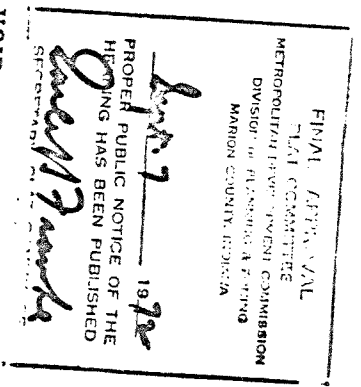 FINAL APPROVAL
PLAT COMMITTEE
METROPOLITAN DEVELOPMENT COMMISSION
DIVISION OF PLANNING & ZONING
MARION COUNTY, INDIANA
Sept 7 1972
PROPER PUBLIC NOTICE OF THE
HEARING HAS BEEN PUBLISHED
SECRETARY